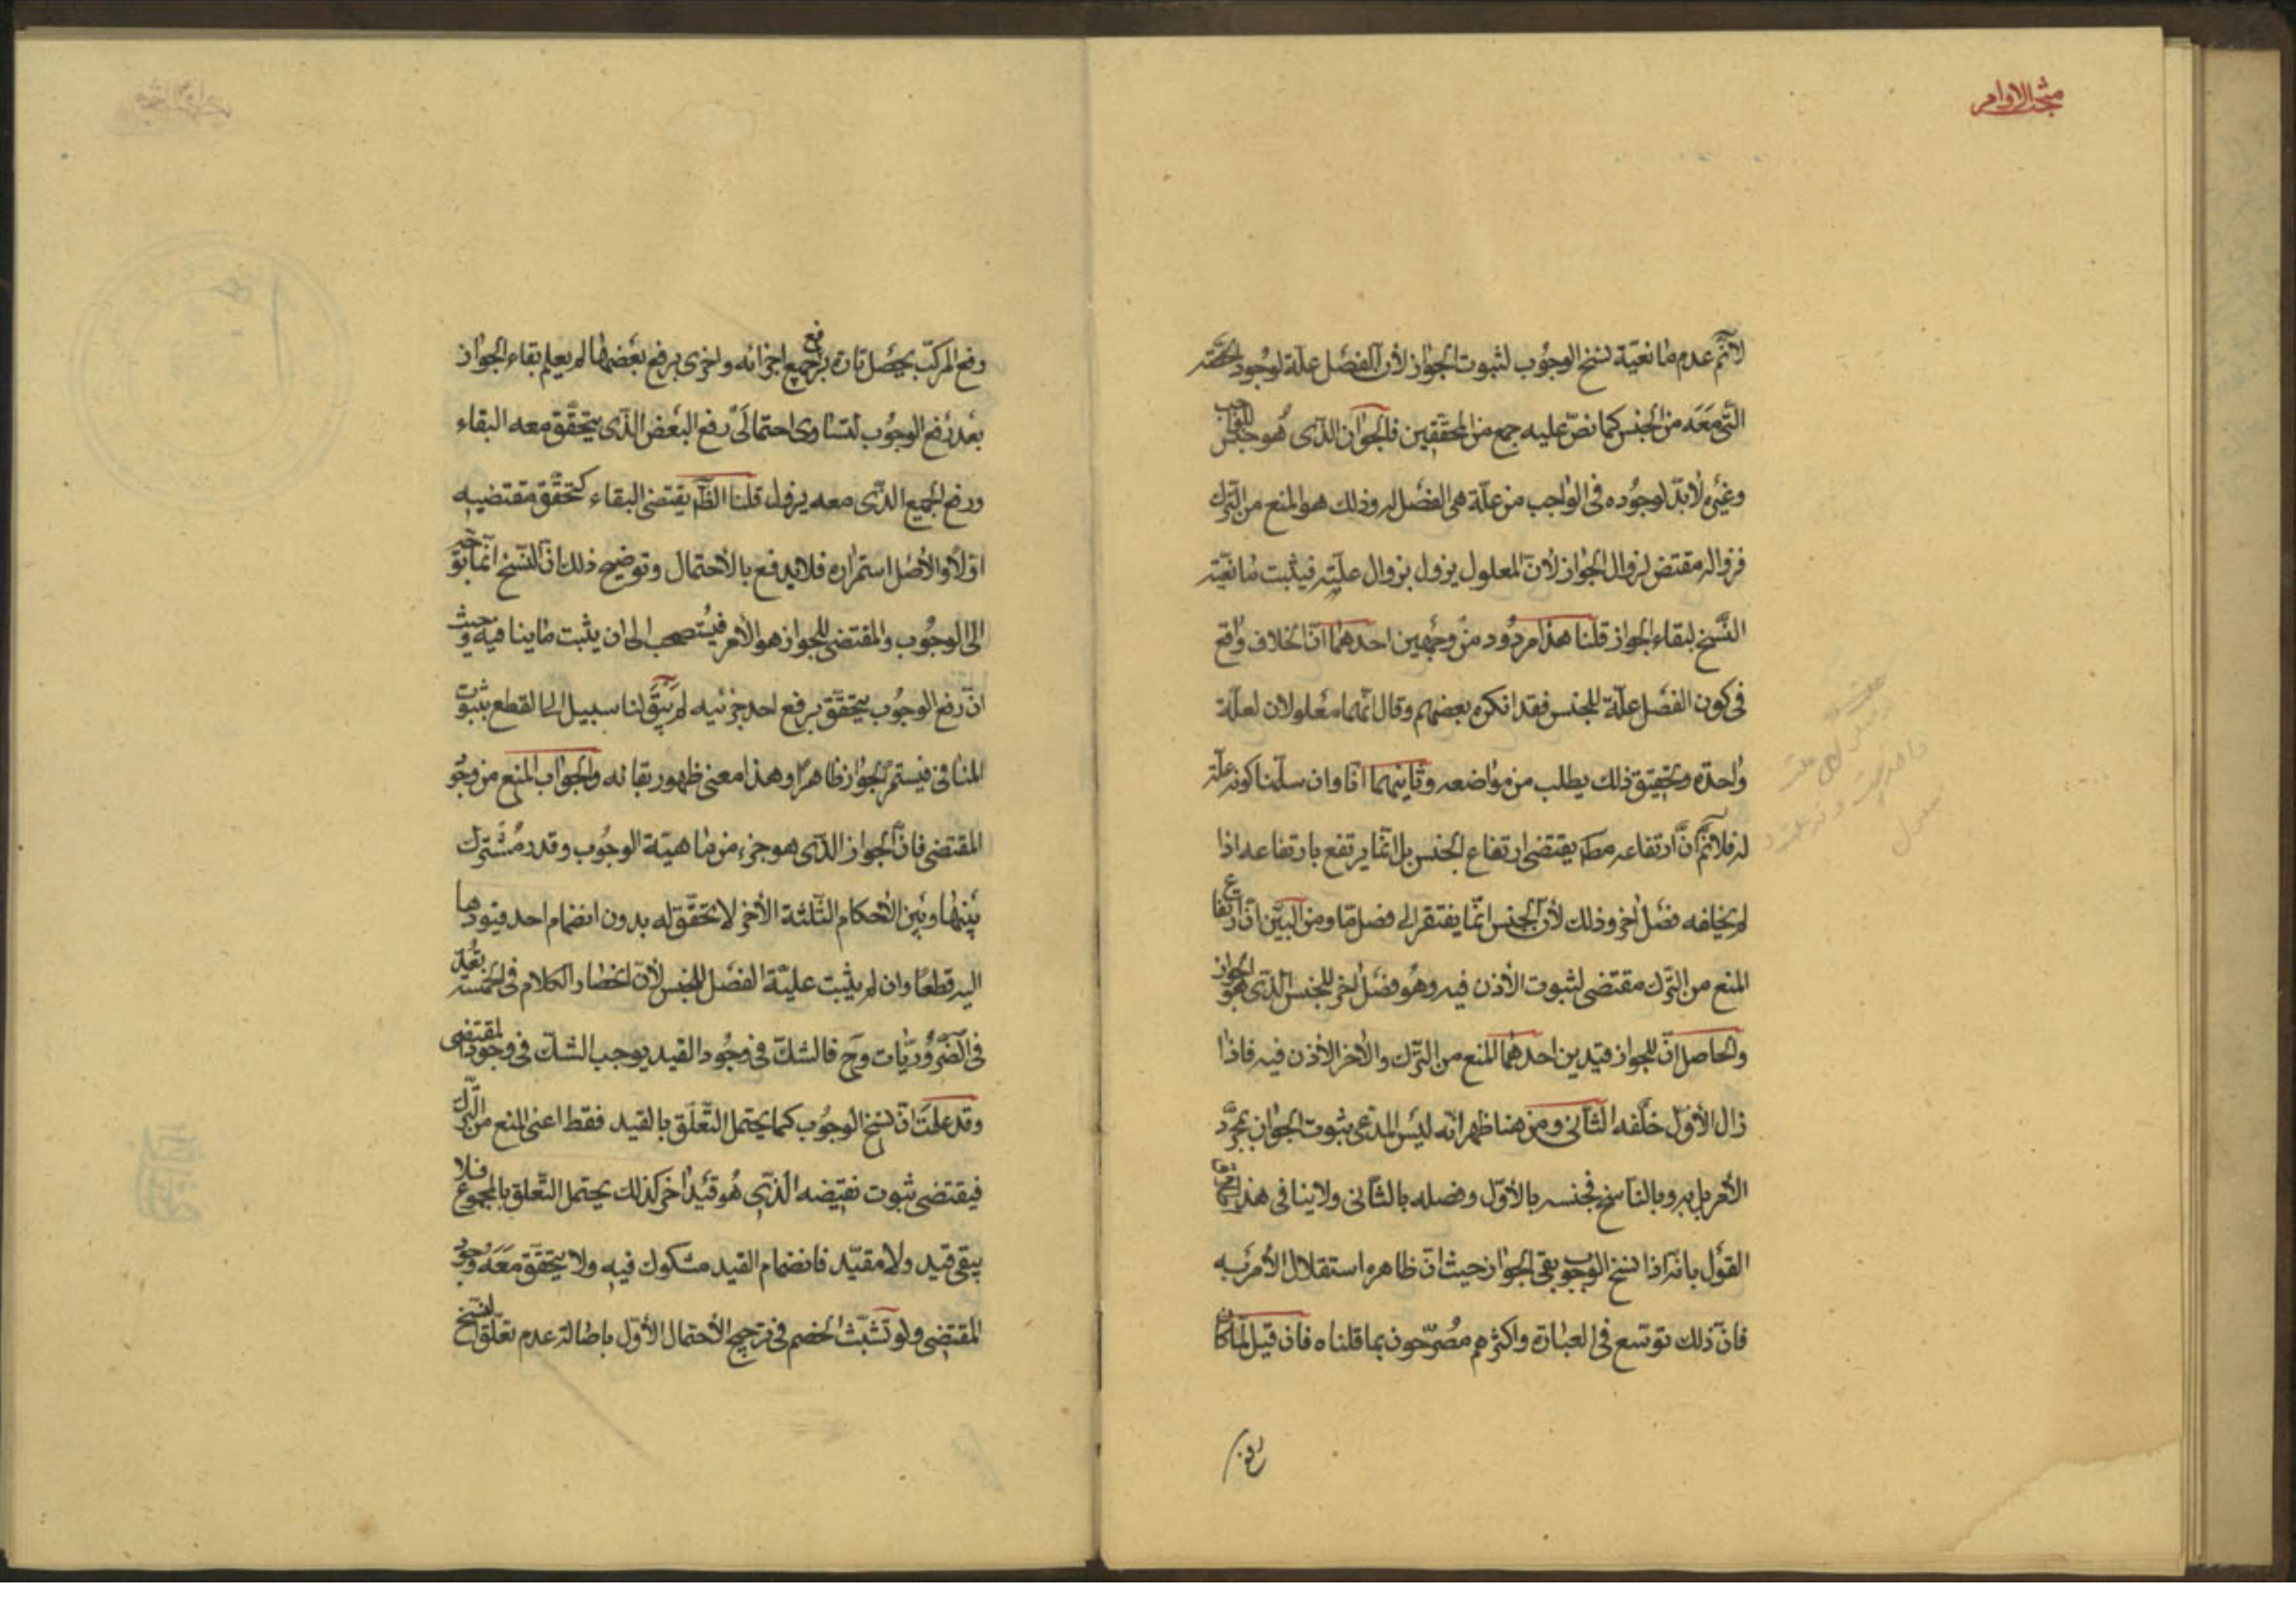 مبحث الاوامر
لانم عدم مانعية نسخ الوجوب لثبوت الجواز لأن الفصل علة لوجود الحصة
التي معه من الجنس كما نص عليه جمع من المحققين فالجواز الذي هو جنس للواجب
وغيره لا بد لوجوده في الواجب من علة هي الفصل له وذلك هو المنع من الترك
فزواله مقتض لزوال الجواز لأن المعلول يزول بزوال علته فيثبت مانعية
النسخ لبقاء الجواز قلنا هذا مردود من وجهين احدهما ان الخلاف واقع
في كون الفصل علة للجنس فقد انكره بعضهم وقال انهما معلولان لعلة
واحدة وتحقيق ذلك يطلب من مواضعه وثانيهما انا وان سلمنا كونه علة
له فلانم أن ارتفاعه مطم يقتضي ارتفاع الجنس بل انما يرتفع بارتفاعه اذا
لم يخلفه فصل اخر وذلك لأن الجنس انما يفتقر الى فصل ما ومن البين ان ارتفاع
المنع من الترك مقتضى لثبوت الأذن فيه وهو فصل اخر للجنس الذي هو الجواز
والحاصل ان للجواز قيدين احدهما المنع من الترك والاخر الاذن فيه فاذا
زال الأول خلفه الثاني ومن هنا ظهر انه ليس المدعى ثبوت الجواز بمجرد
الأمر بل به وبالناسخ فجنسه بالأول وفصله بالثاني ولا ينافي هذا اطلاق
القول بانه اذا نسخ الوجوب بقي الجواز حيث ان ظاهره استقلال الأمر به
فان ذلك توسع في العبارة واكثرهم مصرحون بما قلناه فان قيل لما كان
رفع
رفع المركب يحصل تارة برفع جميع اجزائه واخرى برفع بعضها لم يعلم بقاء الجواز
بعد رفع الوجوب لتساوى احتمالي رفع البعض الذي يتحقق معه البقاء
ورفع الجميع الذي معه يزول قلنا الظم يقتضى البقاء لتحقق مقتضيه
اولا والأصل استمراره فلا يدفع بالأحتمال وتوضيح ذلك ان النسخ انما توجه
الى الوجوب والمقتضى للجواز هو الأمر فيستصحب الى ان يثبت ما ينافيه وحيث
ان رفع الوجوب يتحقق برفع احد جزئيه لم يبق لنا سبيل الى القطع بثبوت
المنافى فيستمر الجواز ظاهرا وهذا معنى ظهور بقائه والجواب المنع من وجود
المقتضى فان الجواز الذي هو جزء من ماهية الوجوب وقدر مشترك
بينها وبين الأحكام الثلثة الأخر لا تحقق له بدون انضمام احد قيودها
اليه قطعا وان لم يثبت علية الفصل للجنس لأن انحصار الكلام في الخمسة يعد
في الضروريات وح فالشك في وجود القيد يوجب الشك في وجود المقتضى
وقد علمت ان نسخ الوجوب كما يحتمل التعلق بالقيد فقط اعنى المنع من الترك
فيقتضى ثبوت نقيضه الذي هو قيد اخر كذلك يحتمل التعلق بالمجموع فلا
يبقى قيد ولا مقيد فانضمام القيد مشكوك فيه ولا يتحقق معه وجود
المقتضى ولو تشبث الخصم في ترجيح الأحتمال الأول باصالة عدم تعلق النسخ